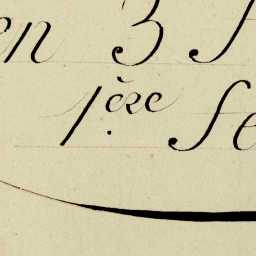 en 3
1.ère Se